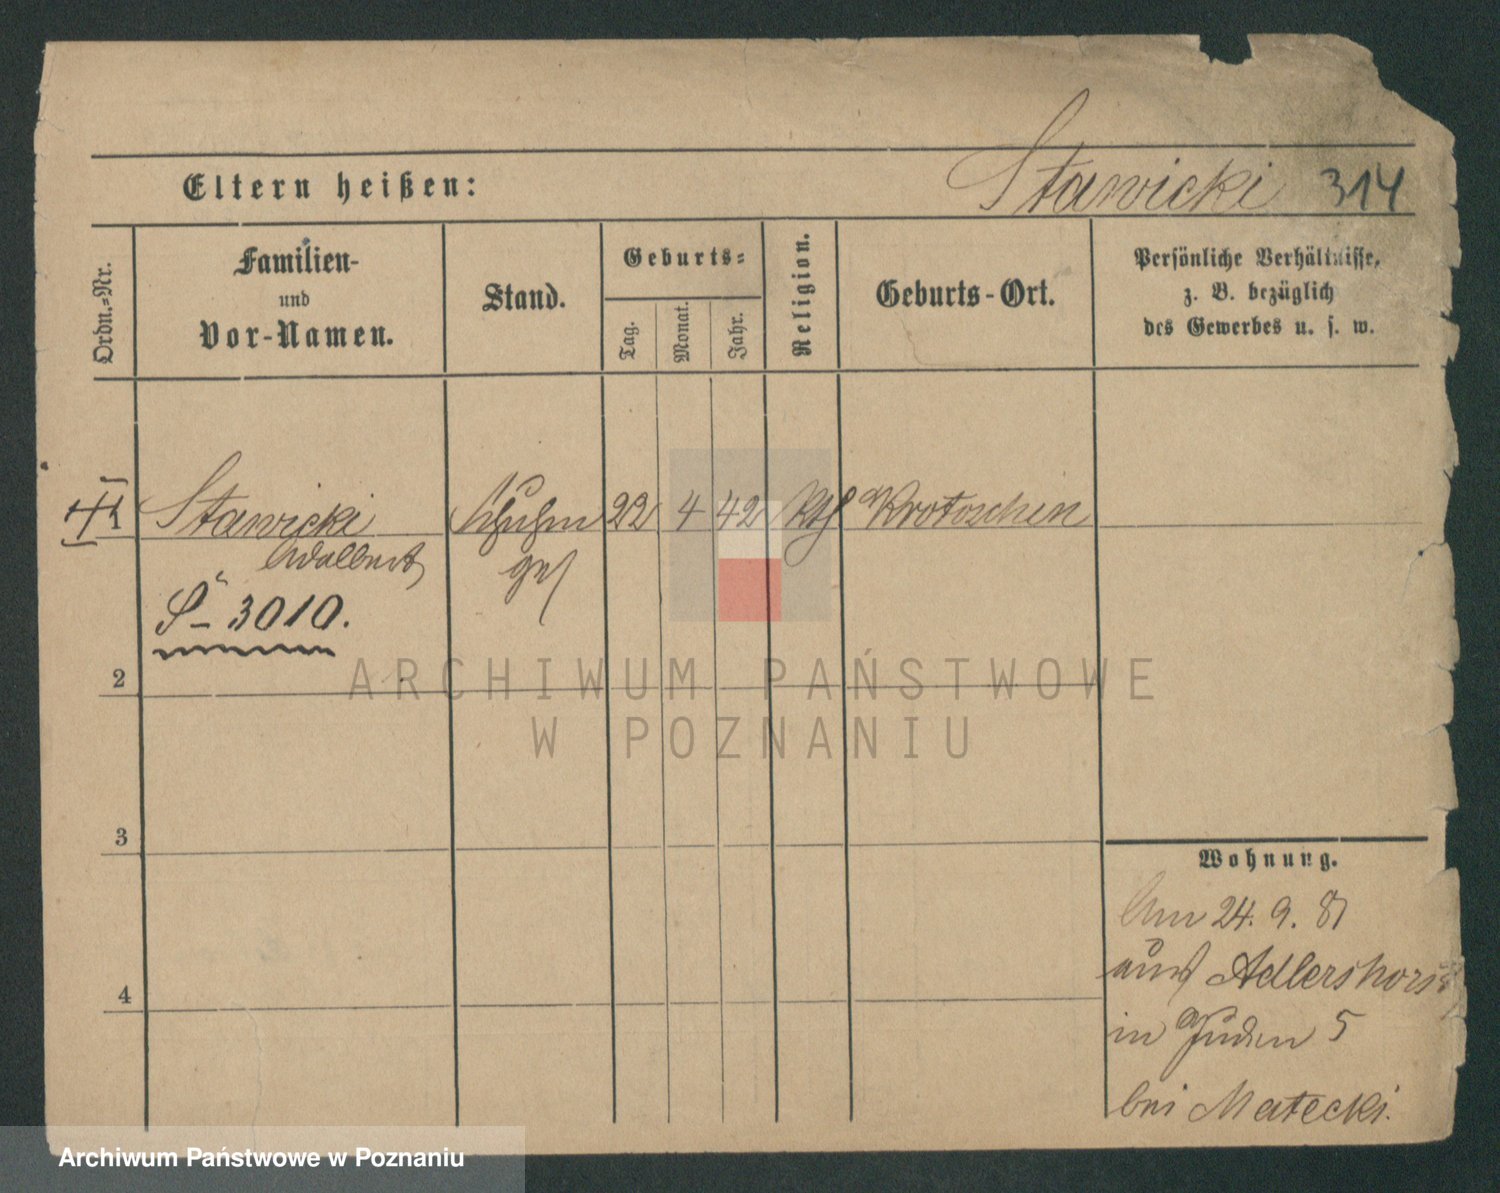 Stawicki 314
Eltern heißen:
Ordn.-Nr.
Familien-
und
Vor-Namen.
Stand.
Geburts-
Tag.
Monat.
Jahr.
Religion.
Geburts-Ort.
Persönliche Verhältnisse,
z. B. bezüglich
des Gewerbes u. s. w.
1 Stawicki Schuhm 22 4 42 Kth Krotoschin
Adalbert ges
S- 3010.
2
ARCHIWUM PAŃSTWOWE
W POZNANIU
3
Wohnung.
Am 24. 9. 81
aus Adlershorst
4
in Juden 5
bei Matecki.
Archiwum Państwowe w Poznaniu